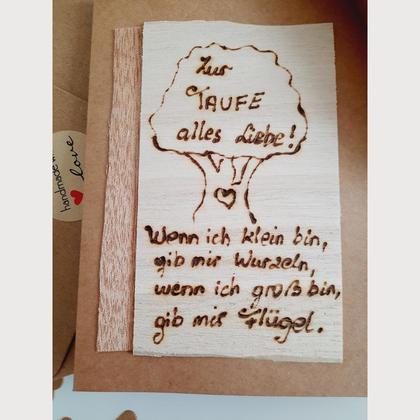 Zur
TAUFE
alles Liebe!
Wenn ich klein bin,
gib mir Wurzeln,
wenn ich groß bin,
gib mir Flügel.
handmade with
love